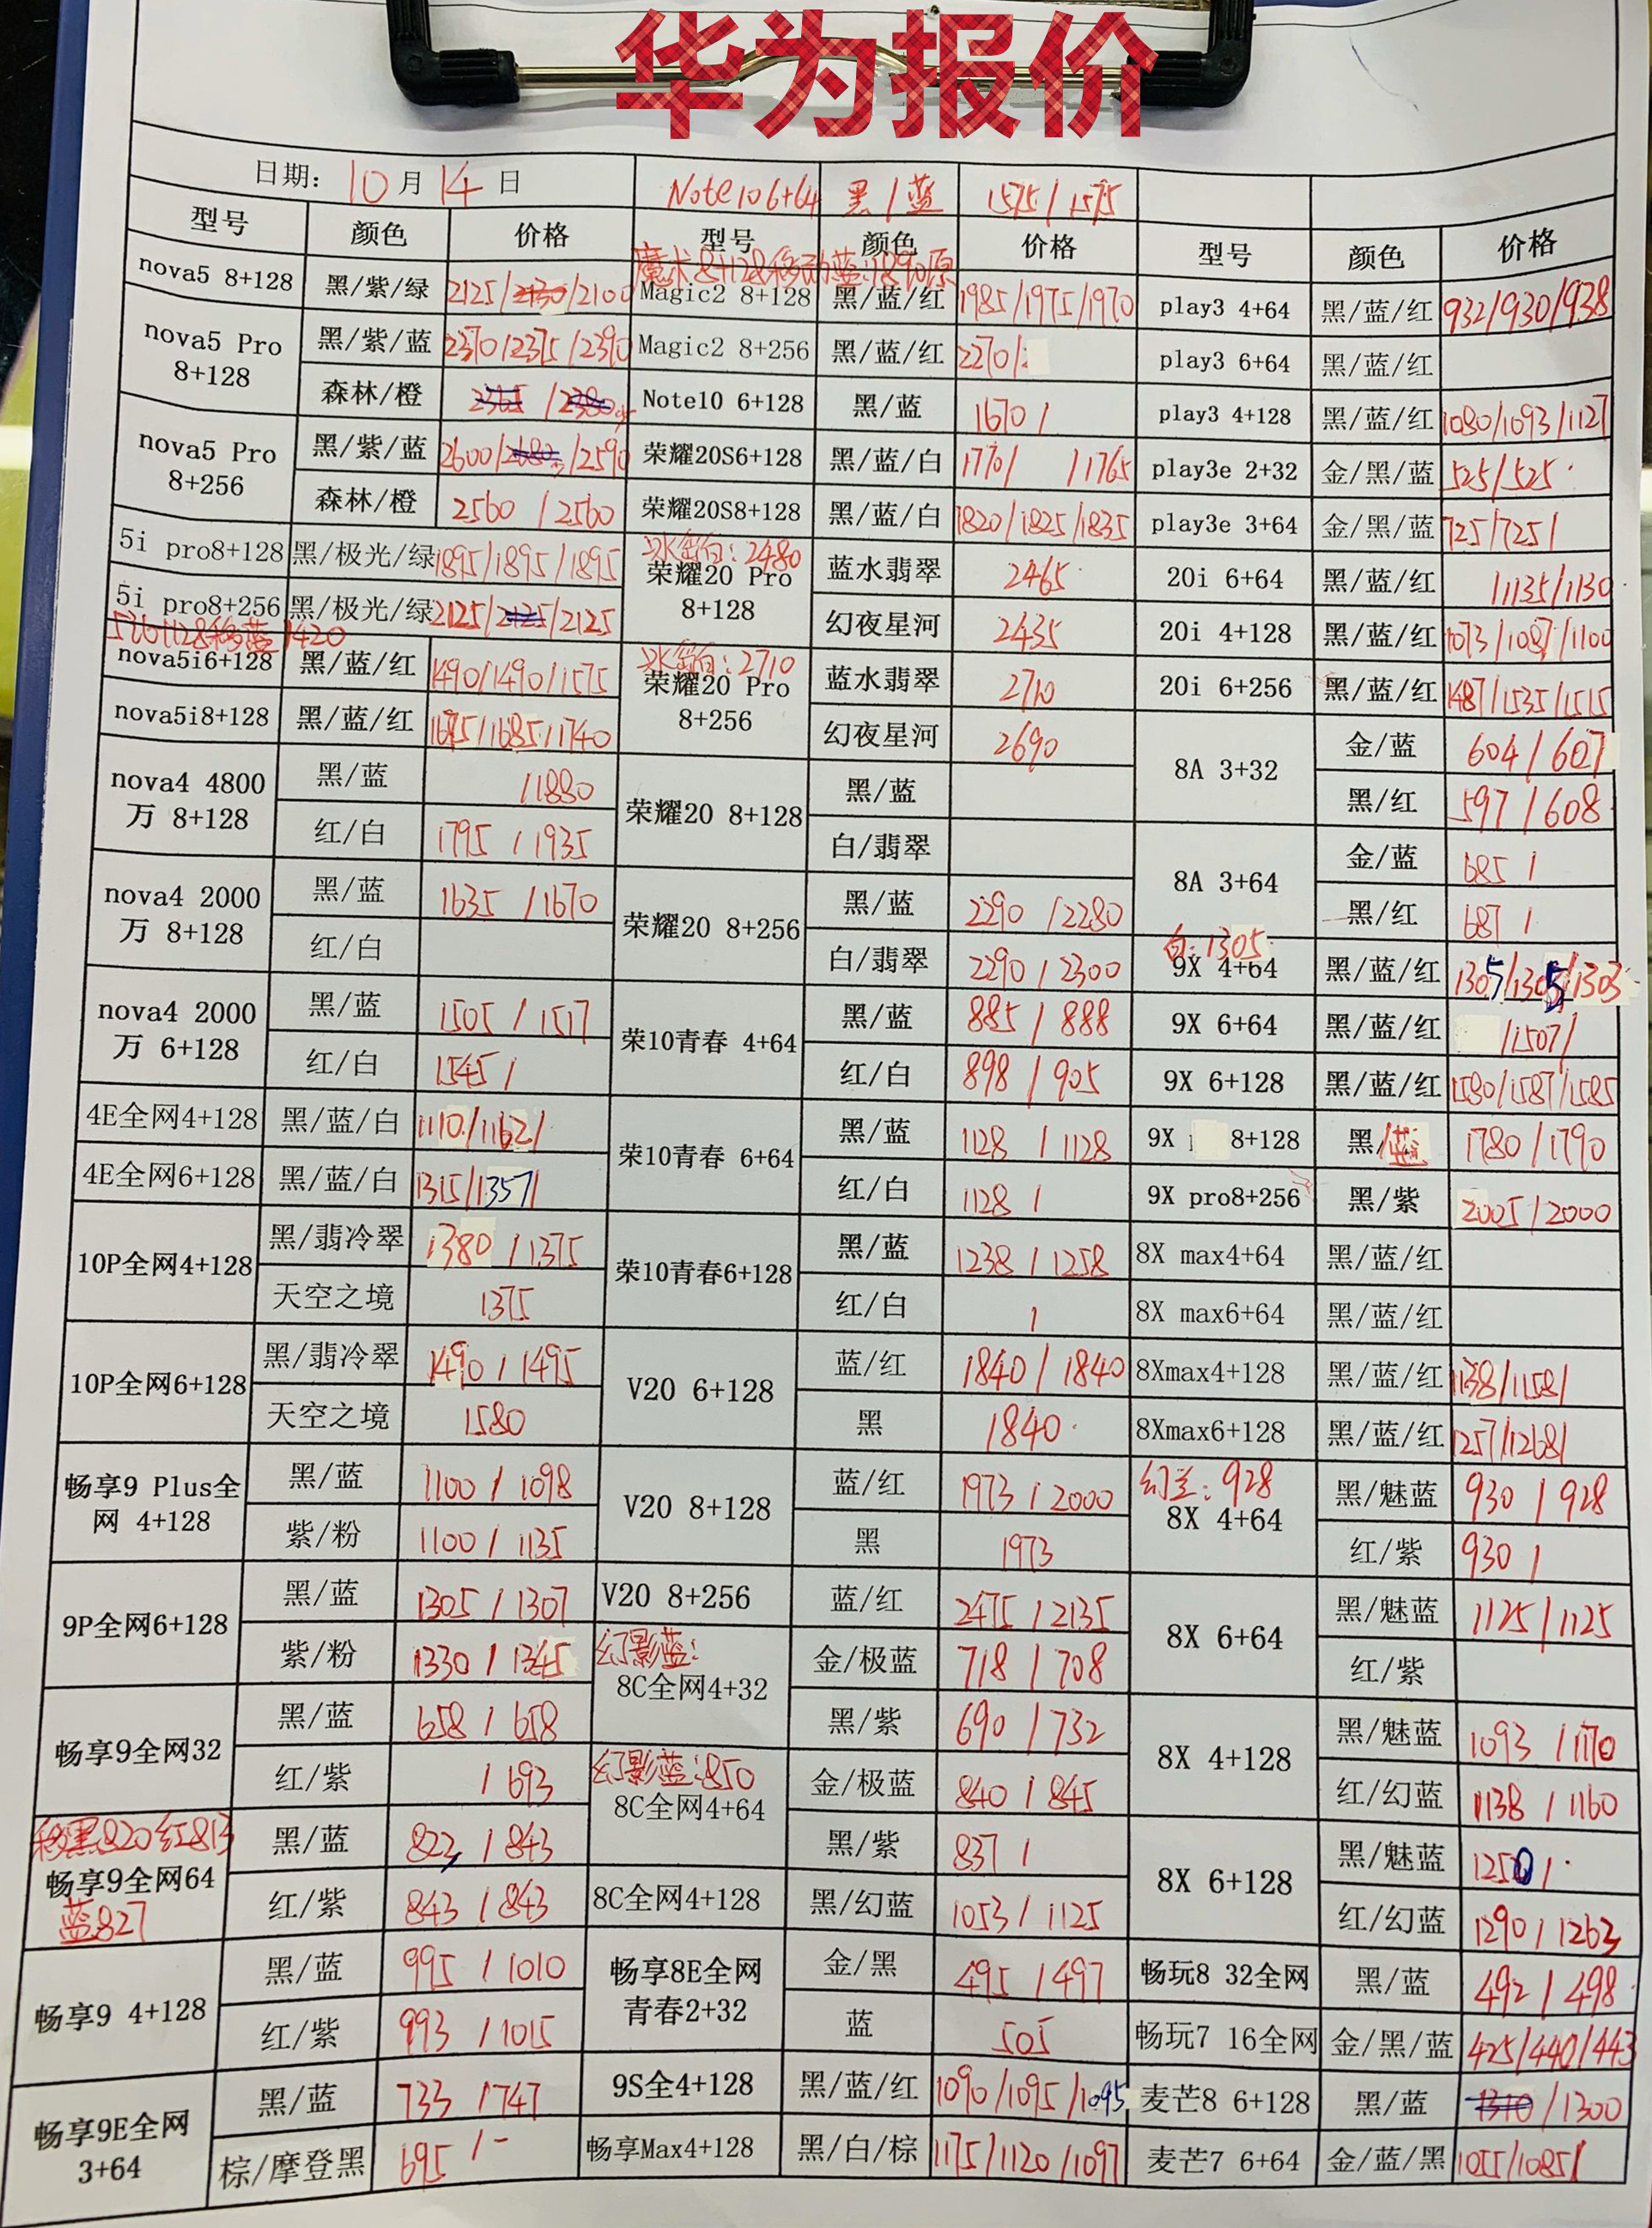 华为报价
日期: 10月14日 Note10 6+64 黑/蓝 1575/1575
型号 颜色 价格 型号 颜色 价格 型号 颜色 价格
魔术8+128移动蓝:1890原
nova5 8+128 黑/紫/绿 2125/2130/2100 Magic2 8+128 黑/蓝/红 1985/1975/1970 play3 4+64 黑/蓝/红 932/930/938
nova5 Pro 8+128 黑/紫/蓝 2370/2375/2390 Magic2 8+256 黑/蓝/红 2270/ play3 6+64 黑/蓝/红
森林/橙 2365/2380 Note10 6+128 黑/蓝 1670/ play3 4+128 黑/蓝/红 1080/1093/1127
nova5 Pro 8+256 黑/紫/蓝 2600/2680/2590 荣耀20S6+128 黑/蓝/白 1770/ /1765 play3e 2+32 金/黑/蓝 525/525
森林/橙 2560/2560 荣耀20S8+128 黑/蓝/白 1820/1825/1835 play3e 3+64 金/黑/蓝 725/725/
5i pro8+128 黑/极光/绿 1895/1895/1895 冰岛白:2480 荣耀20 Pro 8+128 蓝水翡翠 2465 20i 6+64 黑/蓝/红 /1135/1130
5i pro8+256 黑/极光/绿 2125/2125/2125 幻夜星河 2435 20i 4+128 黑/蓝/红 1073/1087/1100
5i6+128移蓝1420
nova5i6+128 黑/蓝/红 1490/1490/1575 冰岛白:2710 荣耀20 Pro 8+256 蓝水翡翠 2710 20i 6+256 黑/蓝/红 1487/1535/1515
nova5i8+128 黑/蓝/红 1695/1685/1740 幻夜星河 2690 8A 3+32 金/蓝 604/607
nova4 4800万 8+128 黑/蓝 /1880 荣耀20 8+128 黑/蓝 黑/红 597/608
红/白 1795/1935 白/翡翠 8A 3+64 金/蓝 685/
nova4 2000万 8+128 黑/蓝 1635/1670 荣耀20 8+256 黑/蓝 2290/2280 黑/红 687/
红/白 白/翡翠 2290/2300 白:1305 9X 4+64 黑/蓝/红 1305/1305/1303
nova4 2000万 6+128 黑/蓝 1505/1517 荣10青春 4+64 黑/蓝 885/888 9X 6+64 黑/蓝/红 /1507/
红/白 1545/ 红/白 898/905 9X 6+128 黑/蓝/红 1580/1587/1585
4E全网4+128 黑/蓝/白 1110/1162/ 荣10青春 6+64 黑/蓝 1128/1128 9X 8+128 黑/蓝 1780/1790
4E全网6+128 黑/蓝/白 1315/1357/ 红/白 1128/ 9X pro8+256 黑/紫 2005/2000
10P全网4+128 黑/翡冷翠 1380/1375 荣10青春6+128 黑/蓝 1238/1258 8X max4+64 黑/蓝/红
天空之境 1375 红/白 / 8X max6+64 黑/蓝/红
10P全网6+128 黑/翡冷翠 1490/1495 V20 6+128 蓝/红 1840/1840 8Xmax4+128 黑/蓝/红 1138/1158/
天空之境 1580 黑 1840 8Xmax6+128 黑/蓝/红 1257/1268/
畅享9 Plus全网 4+128 黑/蓝 1100/1098 V20 8+128 蓝/红 1973/2000 幻兰:928 8X 4+64 黑/魅蓝 930/928
紫/粉 1100/1135 黑 1973 红/紫 930/
9P全网6+128 黑/蓝 1305/1307 V20 8+256 蓝/红 2475/2135 8X 6+64 黑/魅蓝 1125/1125
紫/粉 1330/1345 幻影蓝: 8C全网4+32 金/极蓝 718/708 红/紫
畅享9全网32 黑/蓝 658/658 黑/紫 690/732 8X 4+128 黑/魅蓝 1093/1170
红/紫 /693 幻影蓝:850 8C全网4+64 金/极蓝 840/845 红/幻蓝 1138/1160
移黑820红813 畅享9全网64 蓝827 黑/蓝 822/843 黑/紫 837/ 8X 6+128 黑/魅蓝 1250/
红/紫 843/843 8C全网4+128 黑/幻蓝 1053/1125 红/幻蓝 1290/1263
畅享9 4+128 黑/蓝 995/1010 畅享8E全网青春2+32 金/黑 495/497 畅玩8 32全网 黑/蓝 492/498
红/紫 993/1015 蓝 505 畅玩7 16全网 金/黑/蓝 425/440/443
畅享9E全网 3+64 黑/蓝 733/747 9S全4+128 黑/蓝/红 1090/1095/1095 麦芒8 6+128 黑/蓝 1310/1300
棕/摩登黑 695/- 畅享Max4+128 黑/白/棕 1175/1120/1097 麦芒7 6+64 金/蓝/黑 1055/1085/